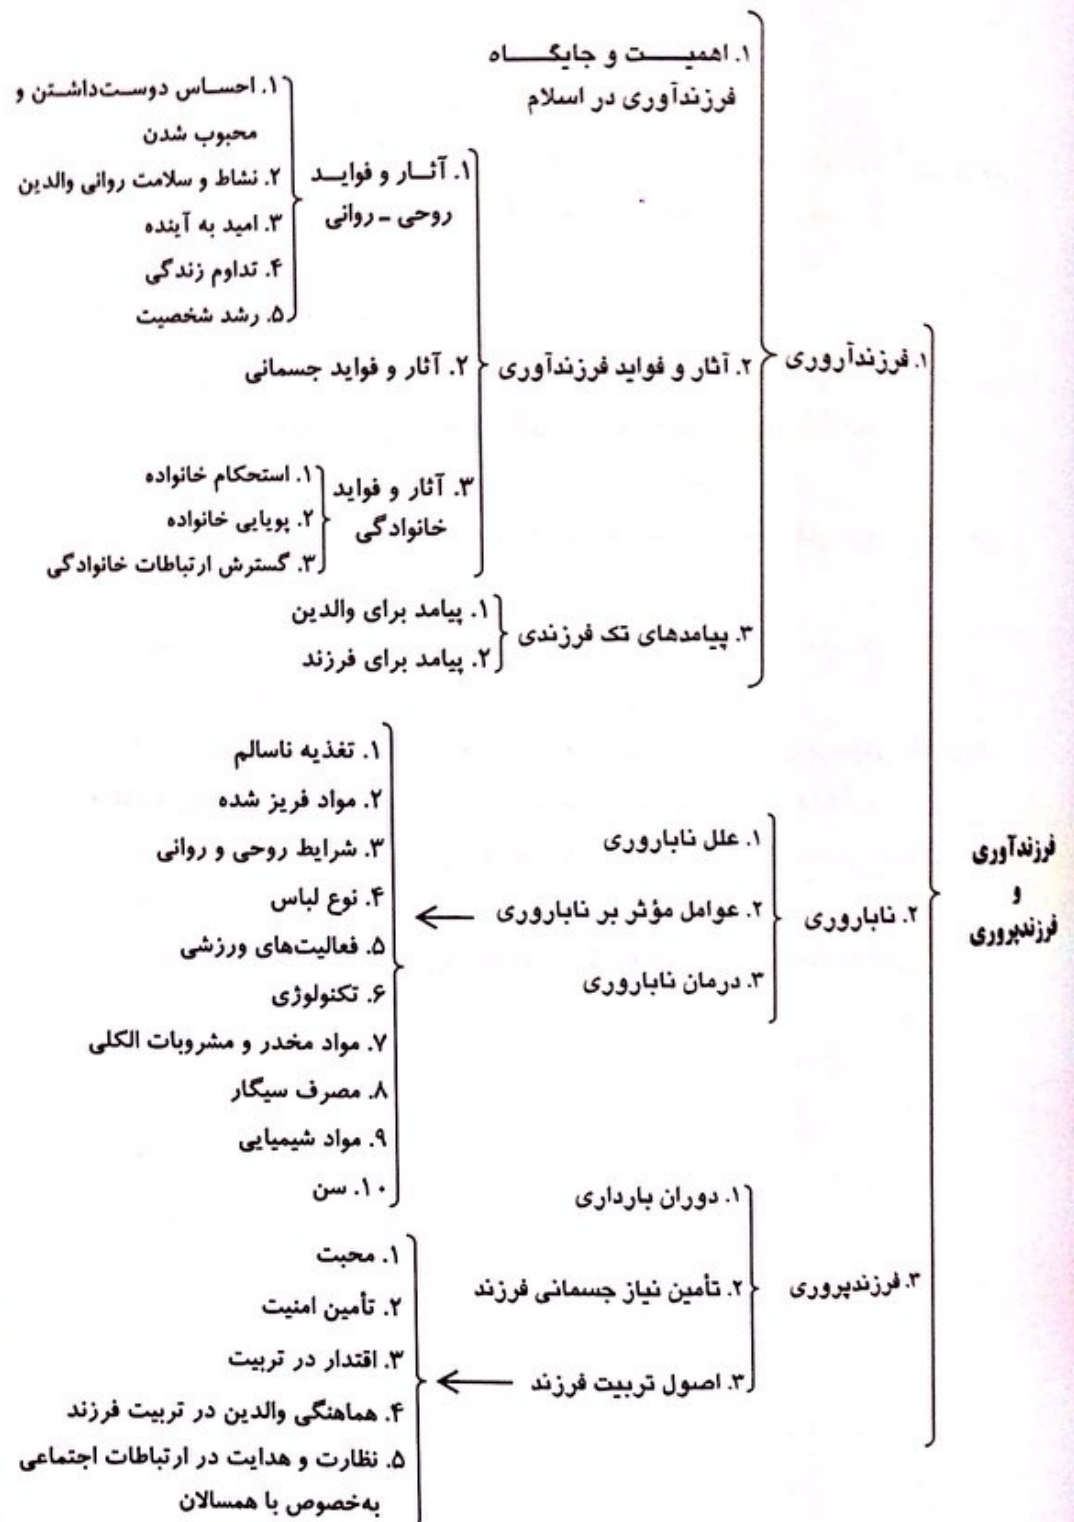 فرزندآوری
و
فرزندپروری
۱. فرزندآروری
۱. اهمیــــت و جایگــــاه
فرزندآوری در اسلام
۲. آثار و فواید فرزندآوری
۱. آثــار و فوایــد
روحی - روانی
۱. احســاس دوســت‌داشــتن و
محبوب شدن
۲. نشاط و سلامت روانی والدین
۳. امید به آینده
۴. تداوم زندگی
۵. رشد شخصیت
۲. آثار و فواید جسمانی
۳. آثار و فواید
خانوادگی
۱. استحکام خانواده
۲. پویایی خانواده
۳. گسترش ارتباطات خانوادگی
۳. پیامدهای تک فرزندی
۱. پیامد برای والدین
۲. پیامد برای فرزند
۲. ناباروری
۱. علل ناباروری
۲. عوامل مؤثر بر ناباروری
۱. تغذیه ناسالم
۲. مواد فریز شده
۳. شرایط روحی و روانی
۴. نوع لباس
۵. فعالیت‌های ورزشی
۶. تکنولوژی
۷. مواد مخدر و مشروبات الکلی
۸. مصرف سیگار
۹. مواد شیمیایی
۱۰. سن
۳. درمان ناباروری
۳. فرزندپروری
۱. دوران بارداری
۲. تأمین نیاز جسمانی فرزند
۳. اصول تربیت فرزند
۱. محبت
۲. تأمین امنیت
۳. اقتدار در تربیت
۴. هماهنگی والدین در تربیت فرزند
۵. نظارت و هدایت در ارتباطات اجتماعی
به‌خصوص با همسالان